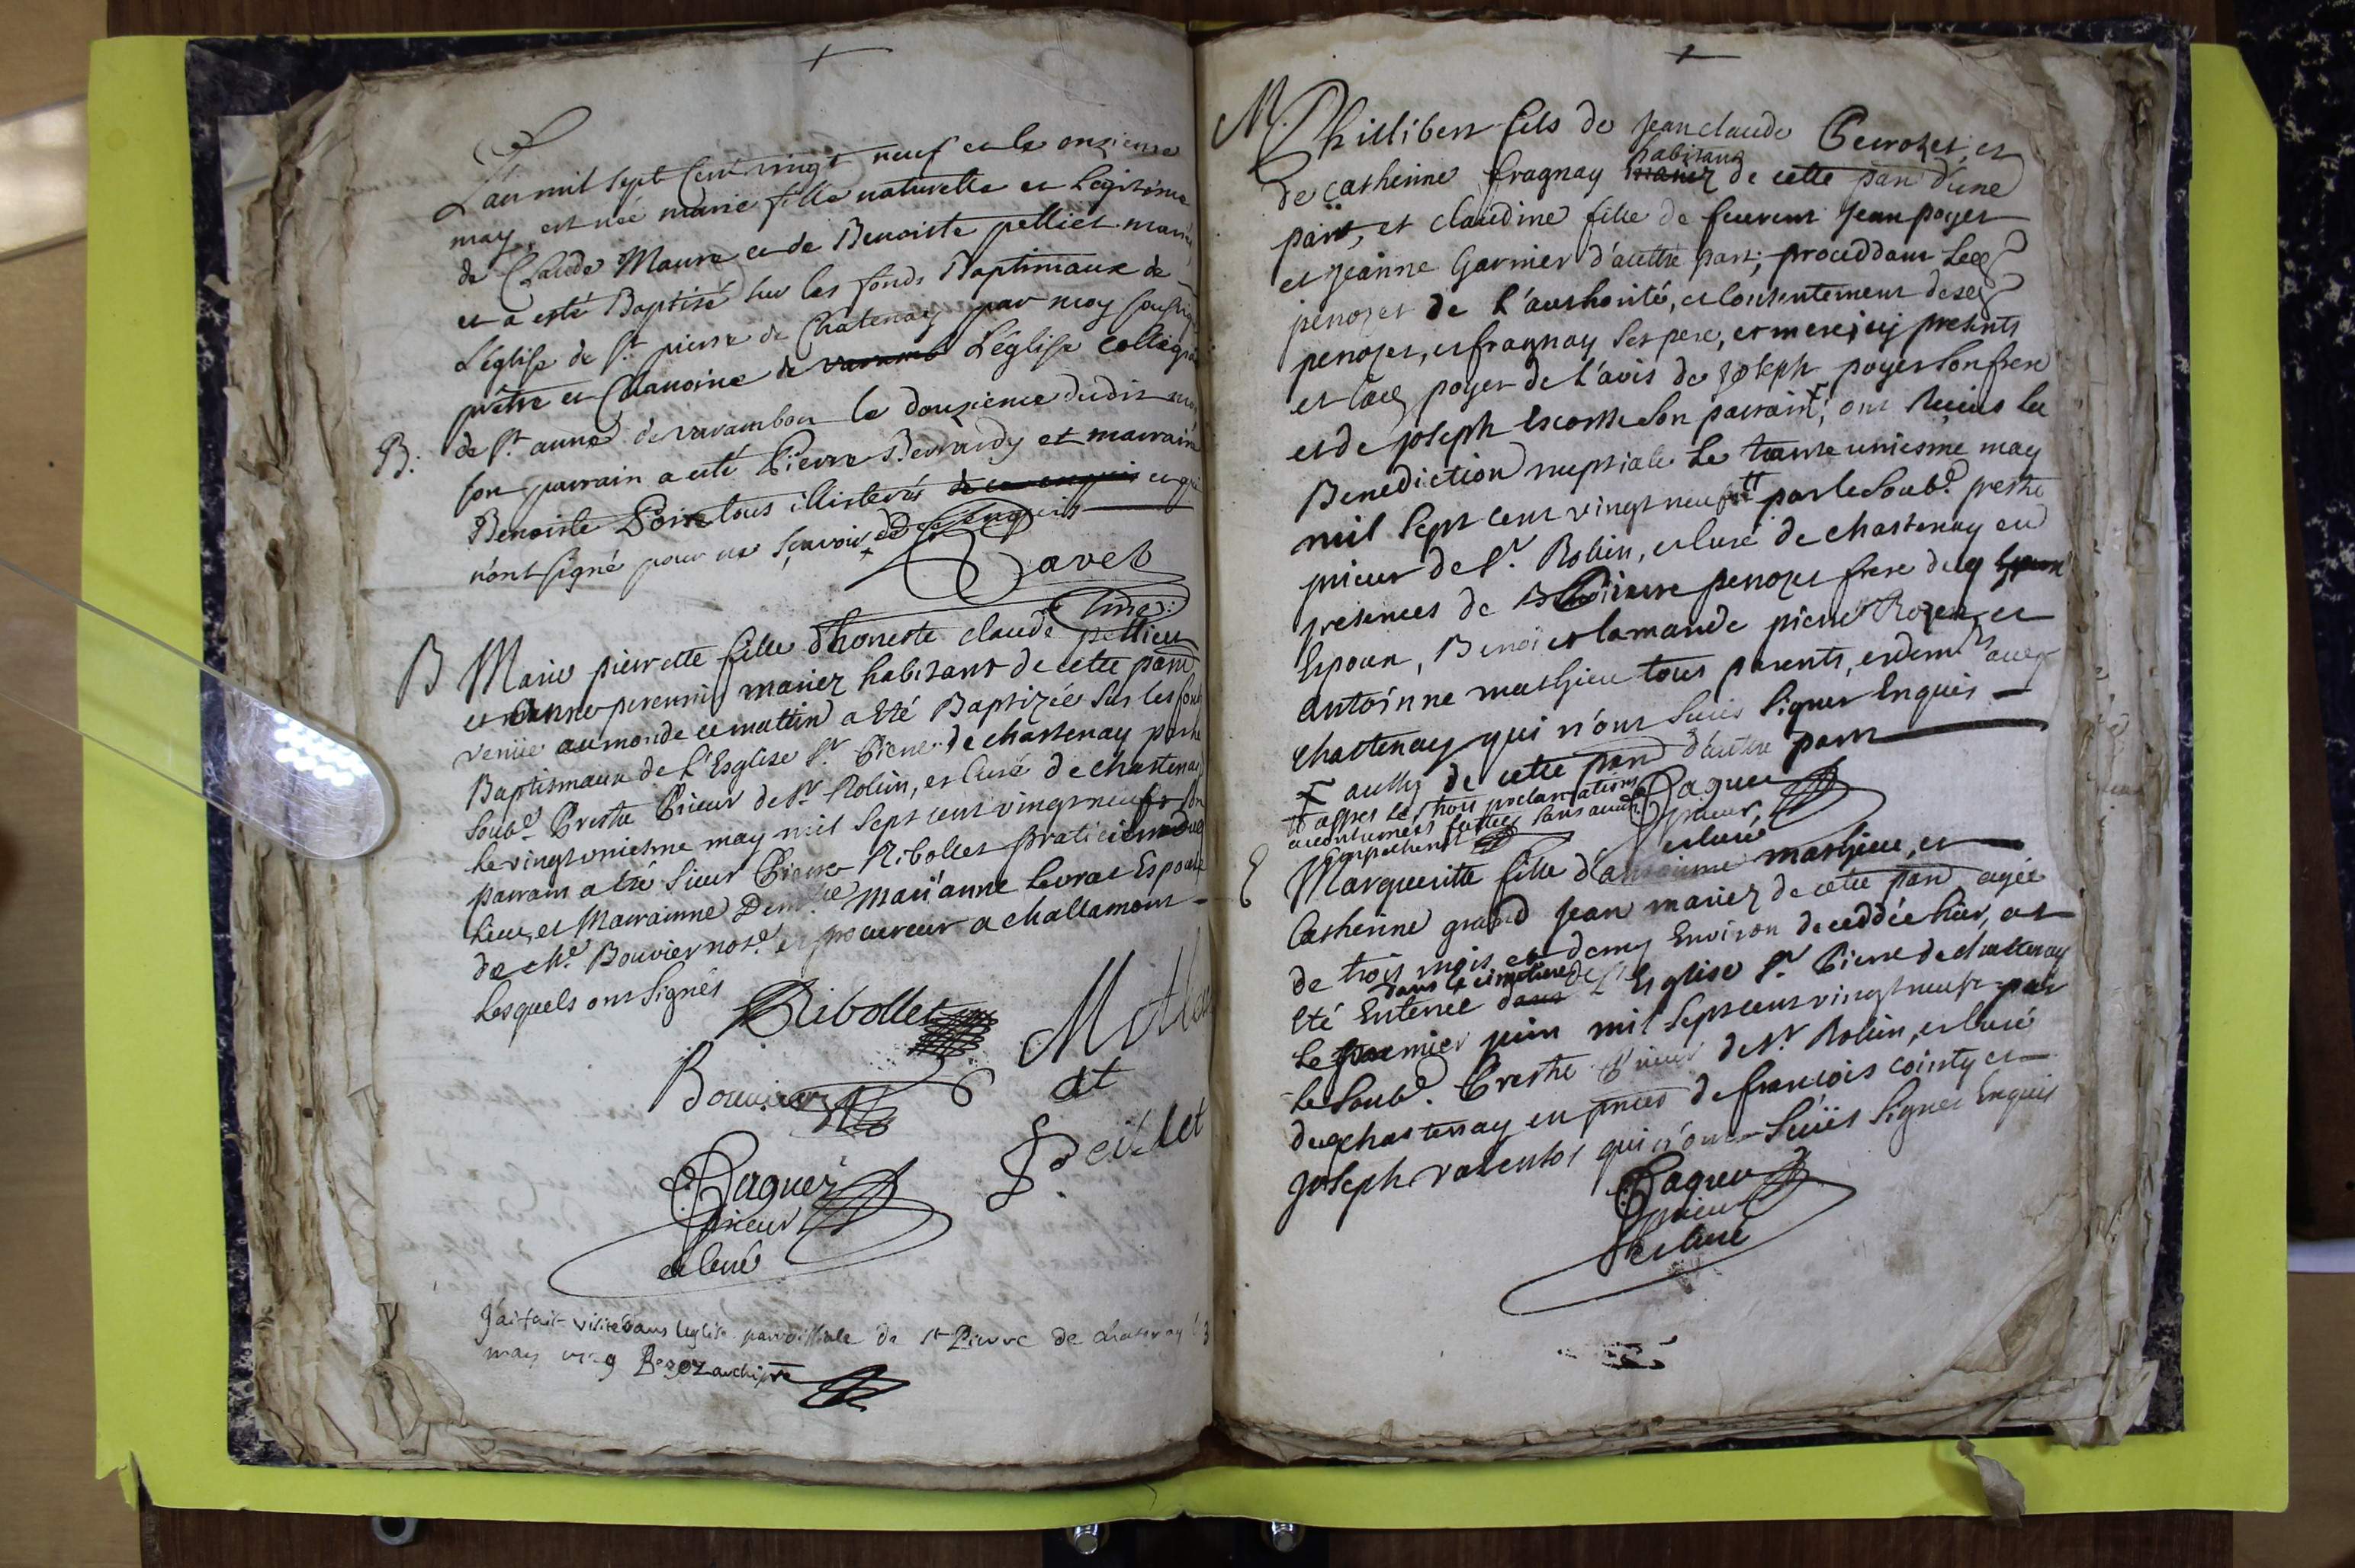 L'an mil sept cent vingt neuf et le onzieme
may, est née marie fille naturelle et Legitime
de Claude Maure et de Benoiste pelliet mariés
et a esté Baptisé sur les fonds Baptimaux de
L'église de St pierre de Chatenay par moy soussigné
prêtre et Chanoine de L'églisse collégia
B. de St anne de varambon le douzieme dudit may
son parrain a esté Pierre Berrardy et marraine
Benoiste tous illisterés et qui
n'ont signé pour ne sçavoir de ce enquis
Favet
B Marie pierrette fille d'honeste claude pellieu
et Anne perennin mariez habitant de cette parr
venüe au monde ce mattin a Eté Baptizée sus les fons
Baptismaux de l'Esglise St Pierre de chastenay par le
soubé Prestre Prieur de St Rolin, et Curé de chastenay
le vingt uniesme may mil sept cent vingt neuf, son
parrain a Eté sieur Pierre Ribollet praticien du
lieu, et Marrainne Demlle Marianne Levrat Espouse
de Me Bouvier note et procureur a challamont
Lesquels ont signés
Ribollet
Bouvier
at
Paguez
prieur
et Curé
J'ai fait visite dans leglise parroissiale de st Pierre de chatenay
may 1729
M Phillibert fils de Jean claude Perrozet, et
habitans
de Catherine fragnay de cette parr d'une
part, et claudine fille de feurent Jean poyet
et Jeanne Garnier d'auttre part; proceddant Led
penozet de l'authorité, et Consentement desd
penozet, et fragnay ses pere, et mere, icy presents
et lad poyet de l'avis de Joseph poyet son frere
et de Joseph Escosse son parrain; ont Reçeus la
Benediction nuptiale Le trante uniesme may
mil sept cent vingt neuf par le soubé prestre
prieur de St Rolin, et Curé de chastenay en
presences de pierre penozet frere dud
Espoux, Benoit lamande pierre Rozet, et
antoinne mathieu tous parents, et demts aud
chastenay qui n'ont sceus signer Enquis
aussy de cette parr d'auttre part
appres les trois proclamations
accoutumées faittes sans aucun
Empechement
Paguez
prieur
et Curé
E Marguerite fille d'antoinne mathieu, et
Catherine grand Jean mariez de cette parr agée
de trois mois et demy Environ deceddée hier, at
dans le cimetiere de
Eté Enterrée l'Esglise St Pierre de chastenay
Le premier juin mil sept cent vingt neuf par
Le soubé. Prestre Prieur de St Rolin, et Curé
dud chastenay en pnces de francois cointy et
Joseph qui n'ont sceüs signer Enquis
Paguez
prieur
et Curé